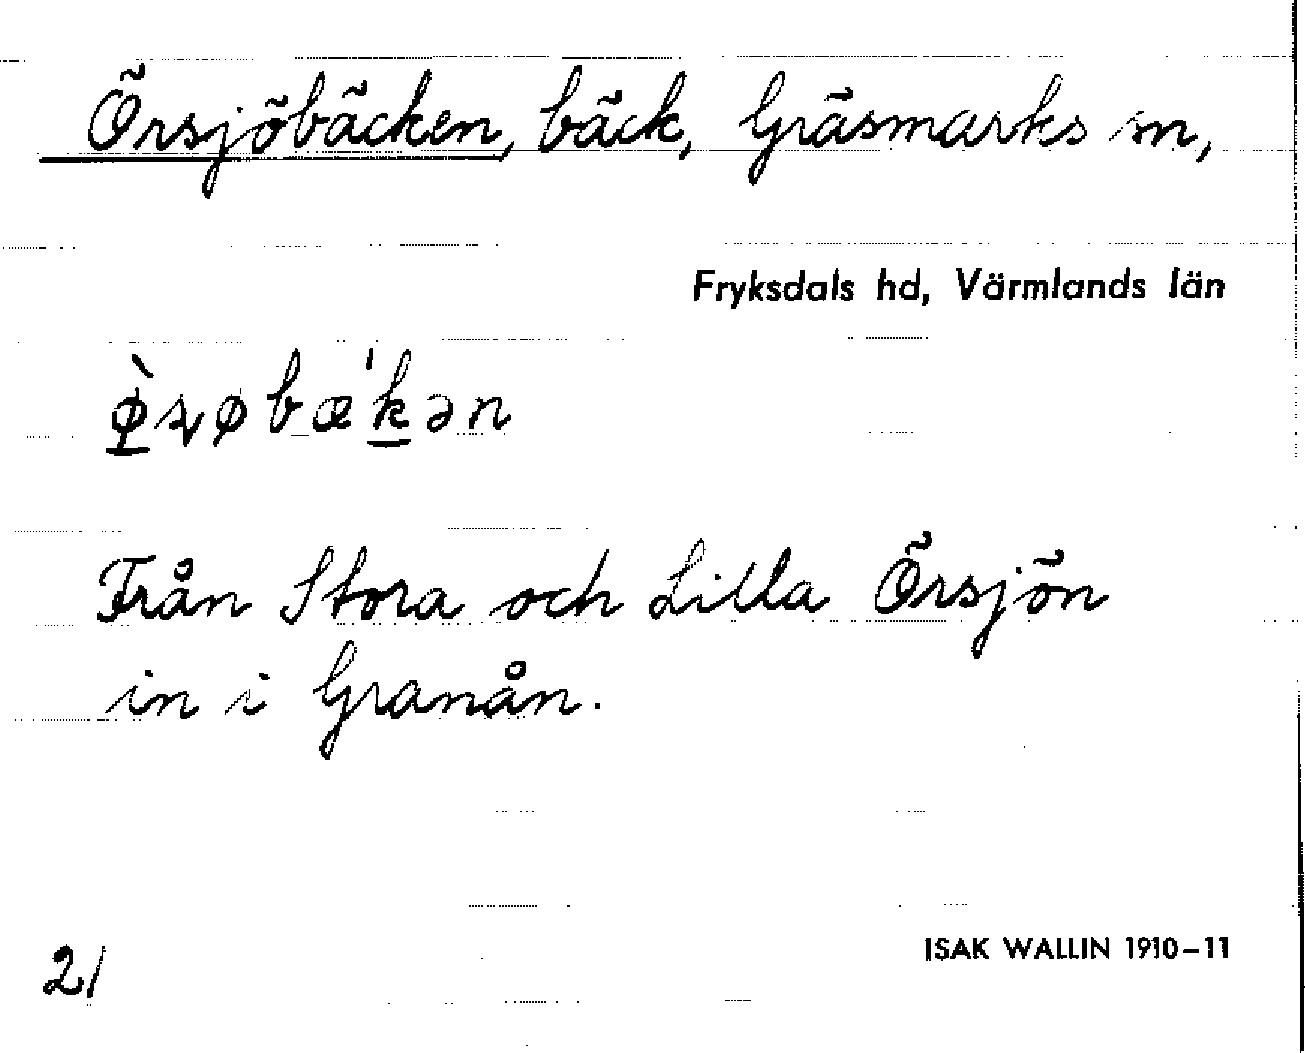 Örsjöbäcken, bäck, Gräsmarks sn,
Fryksdals hd, Värmlands län
Från Stora och Lilla Örsjön
in i Granån.
21
ISAK WALLIN 1910–11